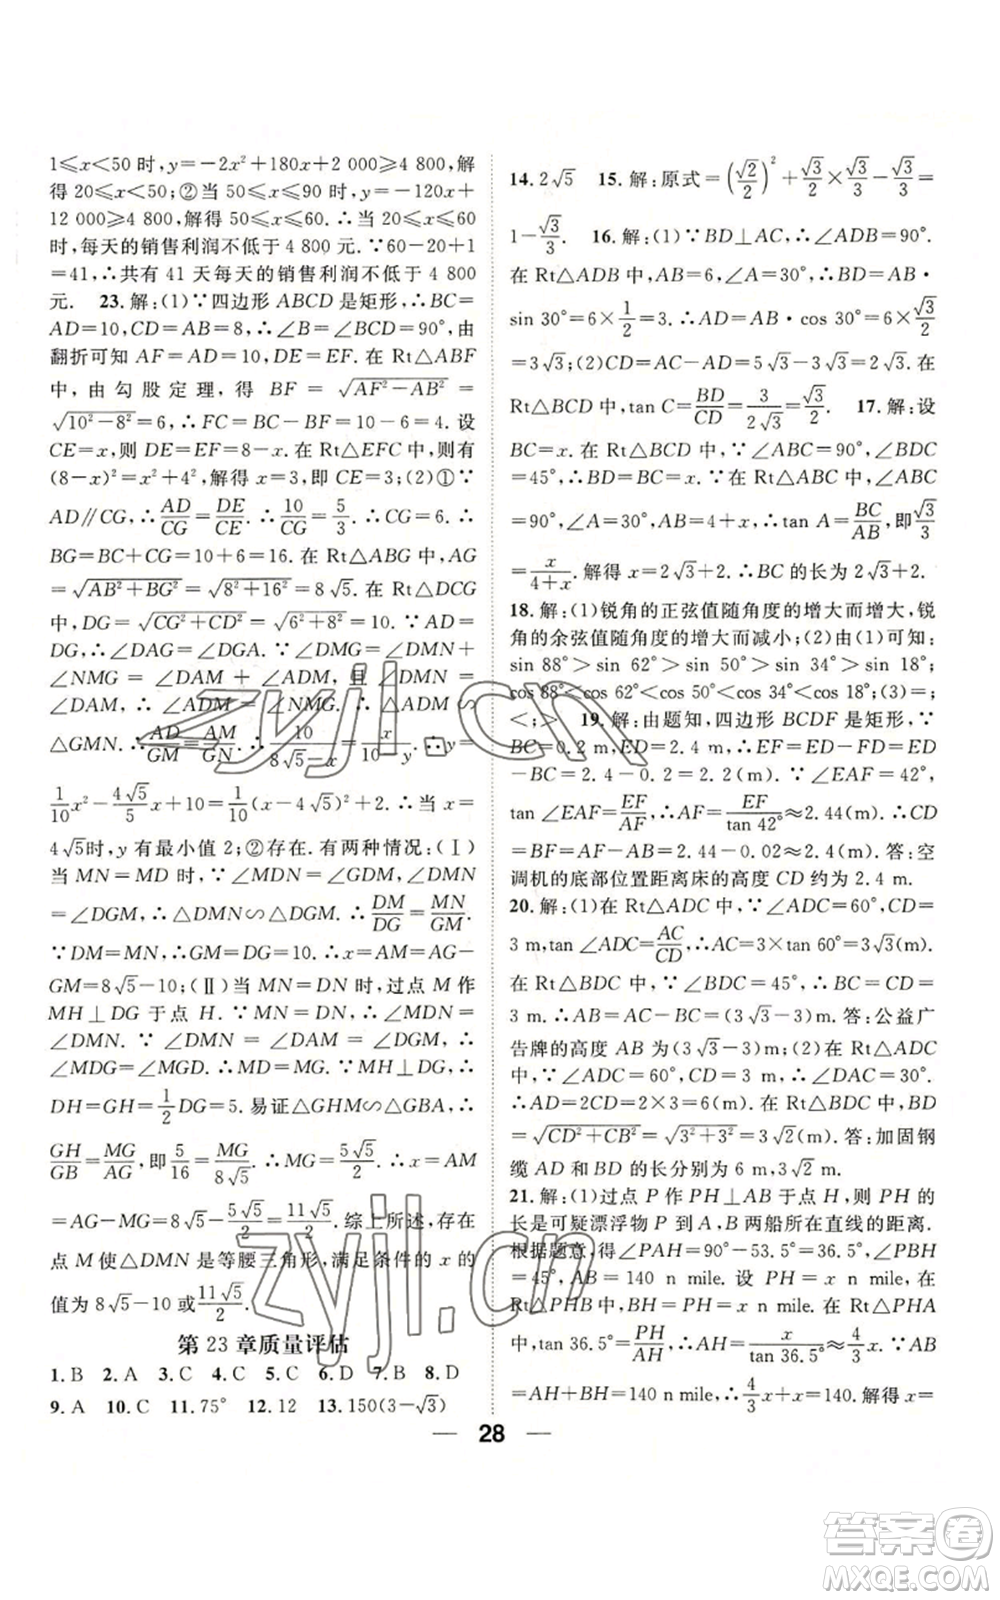 1≤x<50 时,y=-2x²+180x+2 000≥4 800,解
得 20≤x<50;②当 50≤x≤90 时,y=-120x+
12 000≥4 800,解得 50≤x≤60.∴当 20≤x≤60
时,每天的销售利润不低于 4 800 元.∵60-20+1
=41,∴共有 41 天每天的销售利润不低于 4 800
元. 23.解:(1)∵四边形 ABCD 是矩形,∴BC=
AD=10,CD=AB=8,∴∠B=∠BCD=90°,由
翻折可知 AF=AD=10,DE=EF.在 Rt△ABF
中,由勾股定理,得 BF=√(AF²-AB²)=
√(10²-8²)=6,∴FC=BC-BF=10-6=4.设
CE=x,则 DE=EF=8-x.在 Rt△EFC 中,则有
(8-x)²=x²+4²,解得 x=3,即 CE=3;(2)①∵
AD∥CG,∴AD/CG=DE/CE.∴10/CG=5/3.∴CG=6.∴
BG=BC+CG=10+6=16.在 Rt△ABG 中,AG
=√(AB²+BG²)=√(8²+16²)=8√5.在 Rt△DCG
中,DG=√(CG²+CD²)=√(6²+8²)=10.∵AD=
DG,∴∠DAG=∠DGA.∵∠DMG=∠DMN+
∠NMG=∠DAM+∠ADM,且∠DMN=
∠DAM,∴∠ADM=∠NMG.∴△ADM∽
△GMN.∴AD/GM=AM/GN.∴10/(8√5-x)=x/(10-y).∴y=
1/10x²-4√5/5x+10=1/10(x-4√5)²+2.∴当 x=
4√5时,y 有最小值 2;②存在.有两种情况:(Ⅰ)
当 MN=MD 时,∵∠MDN=∠GMD,∠DMN
=∠DGM,∴△DMN∽△DGM.∴DM/DG=MN/GM.
∵DM=MN,∴GM=DG=10.∴x=AM=AG-
GM=8√5-10;(Ⅱ)当 MN=DN 时,过点 M 作
MH⊥DG 于点 H.∵MN=DN,∴∠MDN=
∠DMN.∵∠DMN=∠DAM=∠DGM,∴
∠MDG=∠MGD.∴MD=MG.∵MH⊥DG,∴
DH=GH=1/2DG=5.易证△GHM∽△GBA,∴
GH/GB=MG/AG,即5/16=MG/8√5.∴MG=5√5/2.∴x=AM
=AG-MG=8√5-5√5/2=11√5/2.综上所述,存在
点 M 使△DMN 是等腰三角形,满足条件的 x 的
值为 8√5-10 或11√5/2.
第 23 章质量评估
1.B 2.A 3.C 4.C 5.C 6.D 7.B 8.D
9.A 10.C 11.75° 12.12 13.150(3-√3)
14.2√5 15.解:原式=(√2/2)²+√3/2×√3/3-√3/3=
1-√3/3. 16.解:(1)∵BD⊥AC,∴∠ADB=90°.
在 Rt△ADB 中,AB=6,∠A=30°,∴BD=AB·
sin 30°=6×1/2=3.∴AD=AB·cos 30°=6×√3/2
=3√3;(2)CD=AC-AD=5√3-3√3=2√3.在
Rt△BCD 中,tan C=BD/CD=3/2√3=√3/2. 17.解:设
BC=x.在 Rt△BCD 中,∵∠ABC=90°,∠BDC
=45°,∴BD=BC=x.在 Rt△ABC 中,∠ABC
=90°,∠A=30°,AB=4+x,∴tan A=BC/AB,即√3/3
=x/(4+x).解得 x=2√3+2.∴BC 的长为 2√3+2.
18.解:(1)锐角的正弦值随角度的增大而增大,锐
角的余弦值随角度的增大而减小;(2)由(1)可知:
sin 88°>sin 62°>sin 50°>sin 34°>sin 18°;
cos 88°<cos 62°<cos 50°<cos 34°<cos 18°;(3)=;
<;> 19.解:由题知,四边形 BCDF 是矩形,∵
BC=0.2 m,ED=2.4 m,∴EF=ED-FD=ED
-BC=2.4-0.2=2.2(m).∵∠EAF=42°,
tan∠EAF=EF/AF,∴AF=EF/tan 42°≈2.44(m).∴CD
=BF=AF-AB=2.44-0.02≈2.4(m).答:空
调机的底部位置距离床的高度 CD 约为 2.4 m.
20.解:(1)在 Rt△ADC 中,∵∠ADC=60°,CD=
3 m,tan∠ADC=AC/CD,∴AC=3×tan 60°=3√3(m).
在 Rt△BDC 中,∵∠BDC=45°,∴BC=CD=
3 m.∴AB=AC-BC=(3√3-3) m.答:公益广
告牌的高度 AB 为(3√3-3)m;(2)在 Rt△ADC
中,∵∠ADC=60°,CD=3,∴∠DAC=30°.
∴AD=2CD=2×3=6(m).在 Rt△BDC 中,BD
=√(CD²+CB²)=√(3²+3²)=3√2(m).答:加固钢
缆 AD 和 BD 的长分别为 6 m,3√2 m.
21.解:(1)过点 P 作 PH⊥AB 于点 H,则 PH 的
长是可疑漂浮物 P 到 A,B 两船所在直线的距离.
根据题意,得∠PAH=90°-53.5°=36.5°,∠PBH
=45°,AB=140 n mile.设 PH=x n mile,在
Rt△PHB 中,BH=PH=x n mile.在 Rt△PHA
中,tan 36.5°=PH/AH,∴AH=x/tan 36.5°≈4/3x.∵AB
=AH+BH=140 n mile,∴4/3x+x=140.解得 x=
28
zyjl.cn
zyjl.cn
答案卷
MXQE.COM